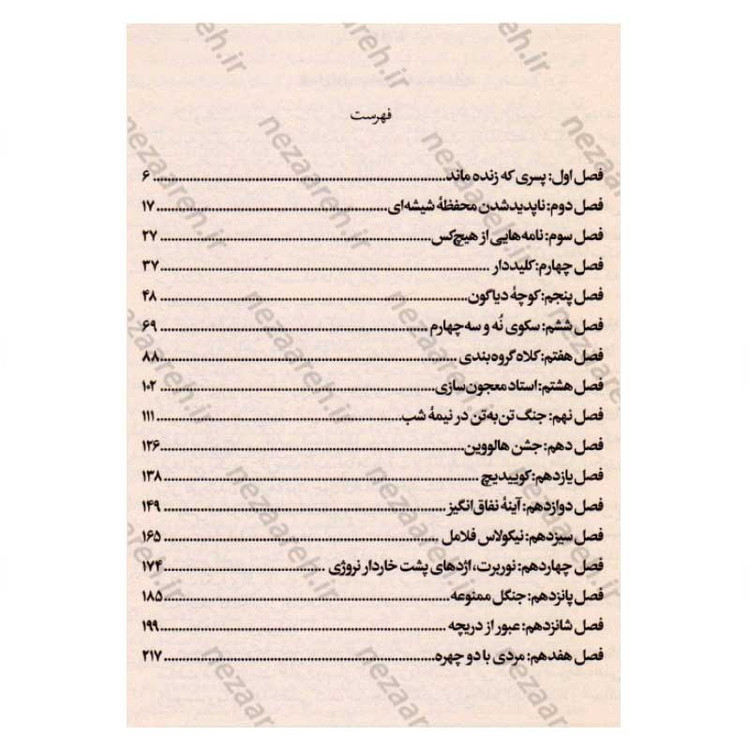 فهرست
فصل اول: پسری که زنده ماند ........ ۶
فصل دوم: ناپدیدشدن محفظهٔ شیشه‌ای ........ ۱۷
فصل سوم: نامه‌هایی از هیچ‌کس ........ ۲۷
فصل چهارم: کلیددار ........ ۳۷
فصل پنجم: کوچهٔ دیاگون ........ ۴۸
فصل ششم: سکوی نُه و سه چهارم ........ ۶۹
فصل هفتم: کلاه گروه‌بندی ........ ۸۸
فصل هشتم: استاد معجون‌سازی ........ ۱۰۲
فصل نهم: جنگ تن‌به‌تن در نیمهٔ شب ........ ۱۱۱
فصل دهم: جشن هالووین ........ ۱۲۶
فصل یازدهم: کوییدیچ ........ ۱۳۸
فصل دوازدهم: آینهٔ نفاق‌انگیز ........ ۱۴۹
فصل سیزدهم: نیکولاس فلامل ........ ۱۶۵
فصل چهاردهم: نوربرت، اژدهای پشت خاردار نروژی ........ ۱۷۴
فصل پانزدهم: جنگل ممنوعه ........ ۱۸۵
فصل شانزدهم: عبور از دریچه ........ ۱۹۹
فصل هفدهم: مردی با دو چهره ........ ۲۱۷
nezaareh.ir